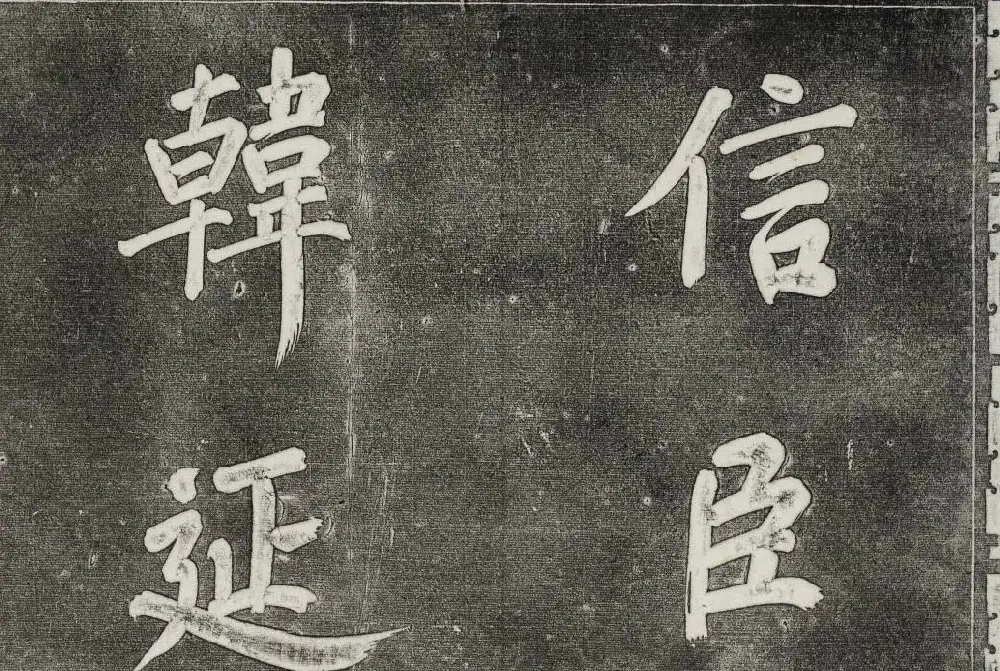 信臣
韓延